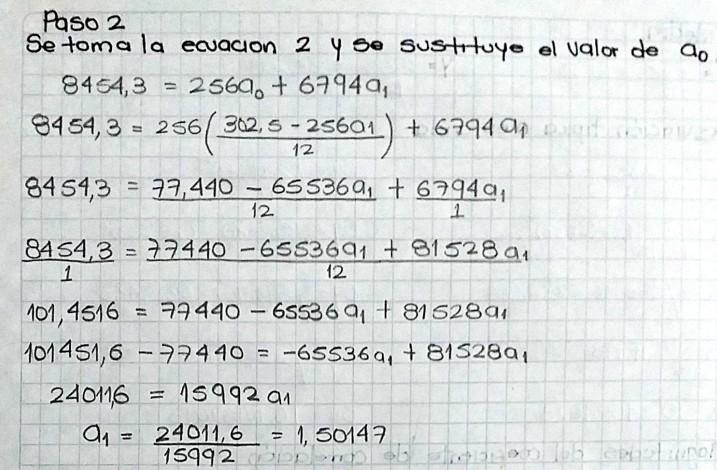 Paso 2
Se toma la ecuacion 2 y se sustituye el valor de a₀.
8454,3 = 256a₀ + 6794a₁
8454,3 = 256(302,5 - 256a₁ / 12) + 6794a₁
8454,3 = 77,440 - 65536a₁ / 12 + 6794a₁ / 1
8454,3 / 1 = 77440 - 65536a₁ + 81528a₁ / 12
101,4516 = 77440 - 65536a₁ + 81528a₁
101451,6 - 77440 = -65536a₁ + 81528a₁
24011,6 = 15992a₁
a₁ = 24011,6 / 15992 = 1,50147